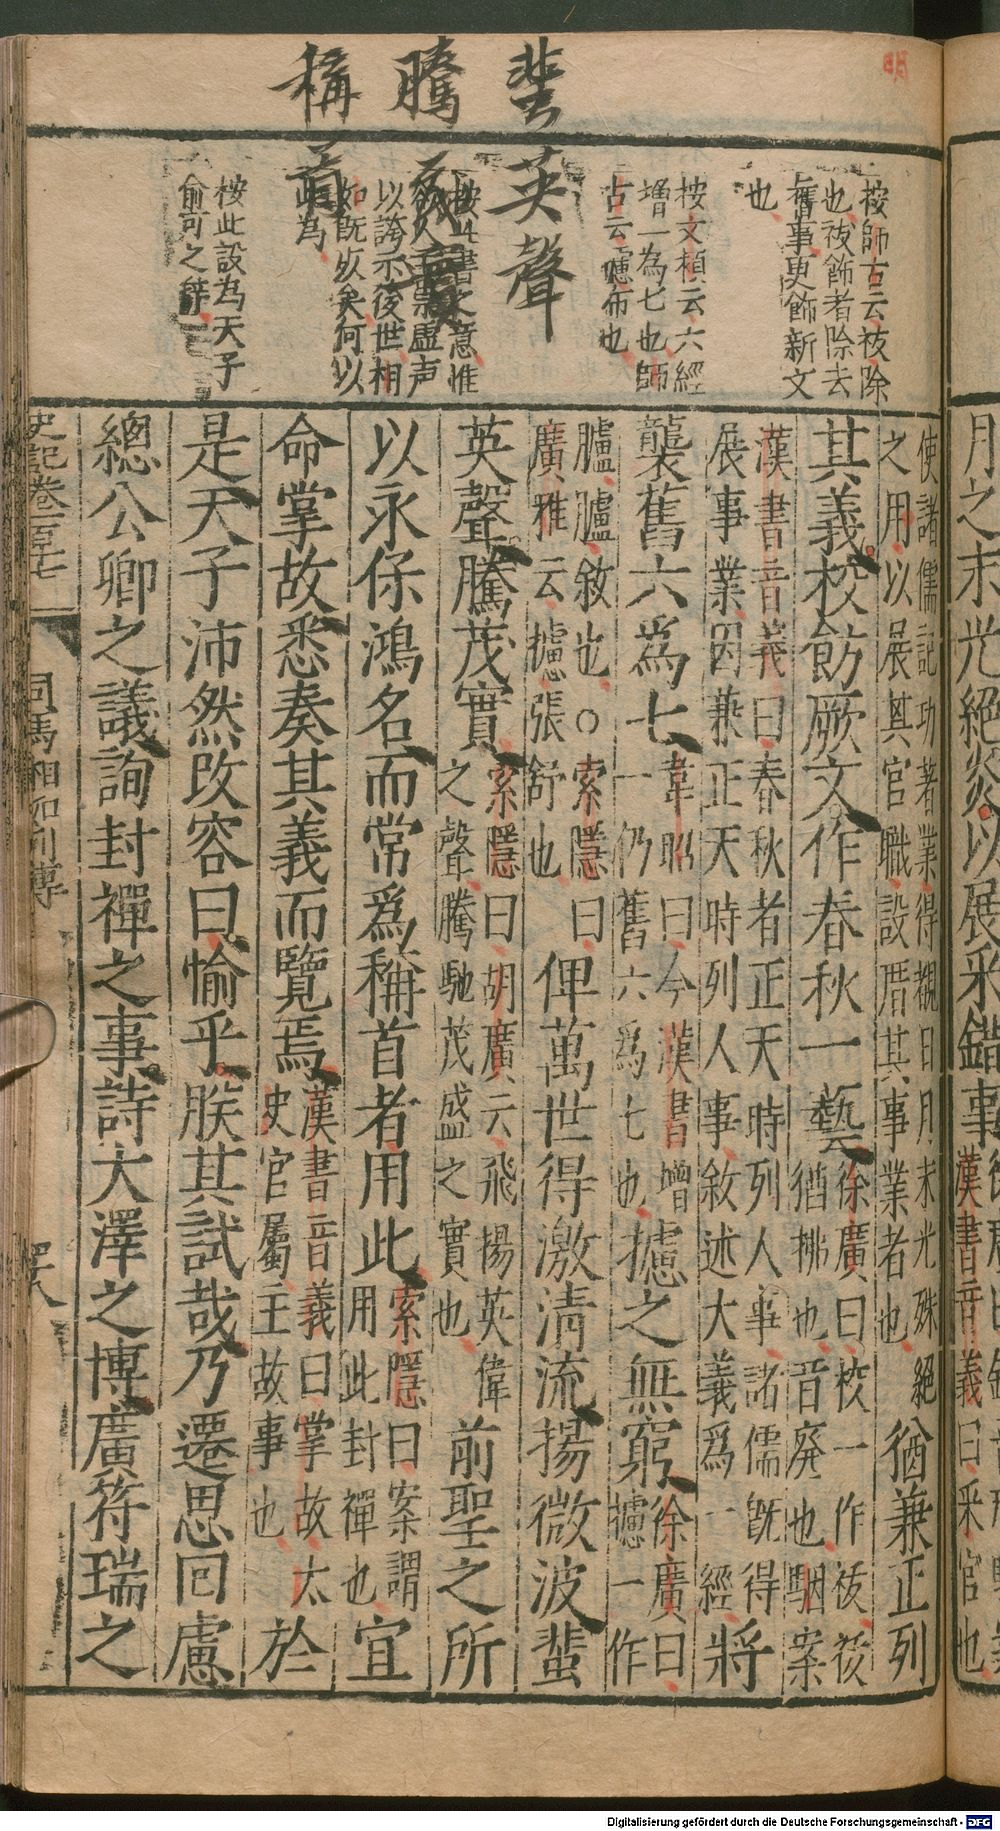 明
蜚英聲
騰茂實
稱首
按師古云祓除
也祓飾者除去
舊事更飾新文
也
按文楨云六經
增一為七也師
古云攄布也
以誇示後世相
如既以矣何以
為
按此設為天子
俞可之辭
使諸儒記功著業得觀日月末光殊絕
之用以展其官職設厝其事業者也
猶兼正列
其義校飭厥文作春秋一藝
徐廣曰校一作祓祓
猶拂也音廢也駰案
漢書音義曰春秋者正天時列人事諸儒既得
展事業因兼正天時列人事敘述大義爲一經
將
襲舊六爲七
韋昭曰今漢書增
一仍舊六爲七也
攄之無窮
徐廣曰
攄一作
臚臚敘也○索隱曰
廣雅云攄張舒也
俾萬世得激清流揚微波蜚
英聲騰茂實
索隱曰胡廣云飛揚英偉
之聲騰馳茂盛之實也
前聖之所
以永保鴻名而常爲稱首者用此
索隱曰案謂
用此封禪也
宜
命掌故悉奏其義而覽焉
漢書音義曰掌故太
史官屬主故事也
於
是天子沛然改容曰愉乎朕其試哉乃遷思回慮
總公卿之議詢封禪之事詩大澤之博廣符瑞之
史記卷百十七
司馬相如列傳
月之末光絕炎以展采錯事
漢書音義曰采官也
Digitalisierung gefördert durch die Deutsche Forschungsgemeinschaft - DFG